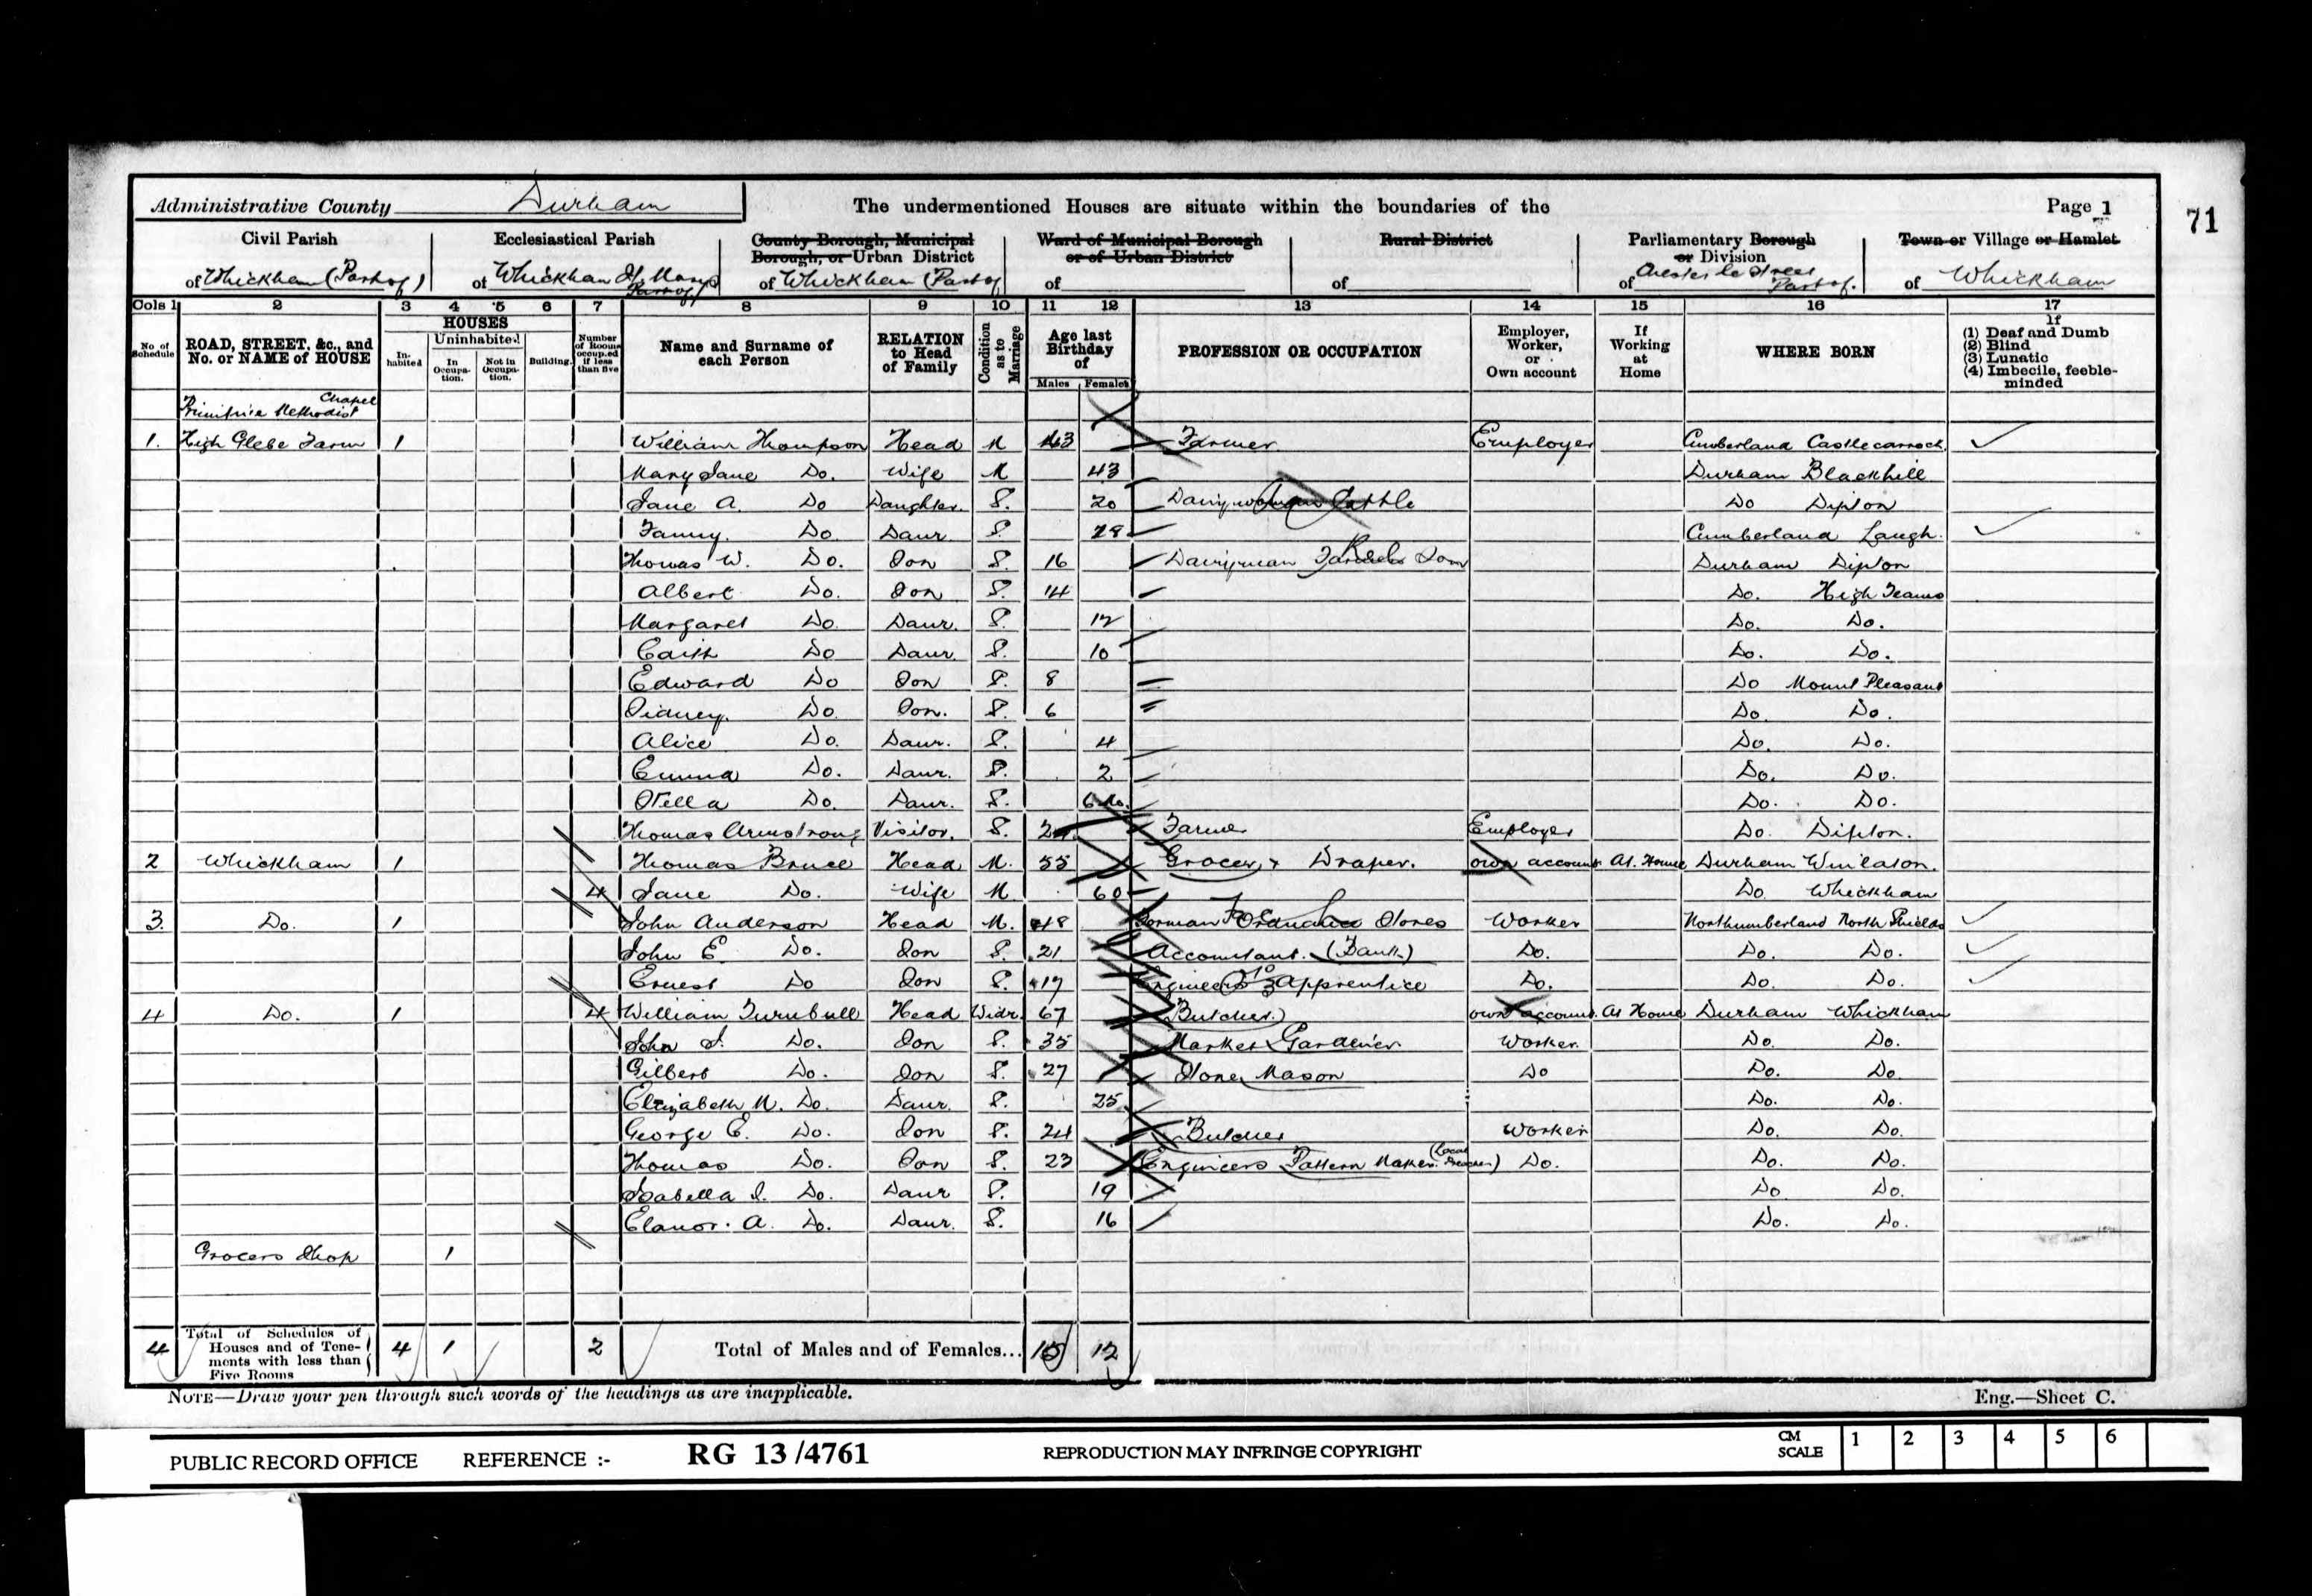 Administrative County Durham The undermentioned Houses are situate within the boundaries of the Page 1
71
Civil Parish Ecclesiastical Parish County Borough, Municipal Borough, or Urban District Ward of Municipal Borough or of Urban District Rural District Parliamentary Borough or Division Town or Village or Hamlet
of Whickham (Part of) of Whickham St Mary Part of of Whickham (Part of of of of Chester le Street Part of. of Whickham
Cols 1 2 3 4 5 6 7 8 9 10 11 12 13 14 15 16 17
No. of Schedule ROAD, STREET, &c., and No. or NAME of HOUSE HOUSES In-habited Uninhabited In Occupa-tion. Not in Occupa-tion. Building. Number of Rooms occupied if less than five Name and Surname of each Person RELATION to Head of Family Condition as to Marriage Age last Birthday of Males Females PROFESSION OR OCCUPATION Employer, Worker, or Own account If Working at Home WHERE BORN If (1) Deaf and Dumb (2) Blind (3) Lunatic (4) Imbecile, feeble-minded
Primitive Methodist Chapel
1. High Glebe Farm 1 William Thompson Head M 43 Farmer Employer Cumberland Castlecarrock
Mary Jane Do. Wife M 43 Durham Blackhill
Jane A. Do Daughter. S. 20 Do Dipton
Fanny. Do. Daur. S. Cumberland
Thomas W. Do. Son S. 16 Dairyman Son Durham Dipton
Albert Do. Son S. 14 Do. High Teams
Margaret Do. Daur. S. 12 Do. Do.
Edith Do Daur. S. 10 Do. Do.
Edward Do Son S. 8 Do Mount Pleasant
Sidney. Do. Son. S. 6 Do. Do.
Alice Do. Daur. S. 4 Do. Do.
Emma Do. Daur. S. 2 Do. Do.
Stella Do. Daur. S. 6 Mo. Do. Do.
Thomas Armstrong Visitor. S. Farmer Employer Do. Dipton.
2 Whickham 1 Thomas Bruce Head M. 55 Grocer & Draper. own account At Home Durham Winlaton.
4 Jane Do. Wife M 60 Do. Whickham
3. Do. 1 John Anderson Head M. 48 Forman Ordnance Stores Worker Northumberland North Shields
John E. Do. Son S. 21 Accountant. (Bank) Do. Do. Do.
Ernest Do Son S. 17 Engineers Apprentice Do. Do. Do.
4 Do. 1 4 William Turnbull Head Widr. 67 Butcher own account. At Home Durham Whickham
John J. Do. Son S. 35 Market Gardener Worker Do. Do.
Gilbert Do. Son S. 27 Stone Mason Do Do. Do.
Elizabeth M. Do. Daur. S. 25 Do. Do.
George E. Do. Son S. 24 Butcher Worker Do. Do.
Thomas Do. Son S. 23 Engineers Pattern Maker (Local Preacher) Do. Do. Do.
Isabella J. Do. Daur S. 19 Do Do.
Elanor. A. Do. Daur. S. 16 Do. Do.
Grocers Shop 1
4 Total of Schedules of Houses and of Tene-ments with less than Five Rooms 4 1 2 Total of Males and of Females... 15 12
NOTE—Draw your pen through such words of the headings as are inapplicable. Eng.—Sheet C.
PUBLIC RECORD OFFICE REFERENCE :- RG 13 /4761 REPRODUCTION MAY INFRINGE COPYRIGHT CM SCALE 1 2 3 4 5 6